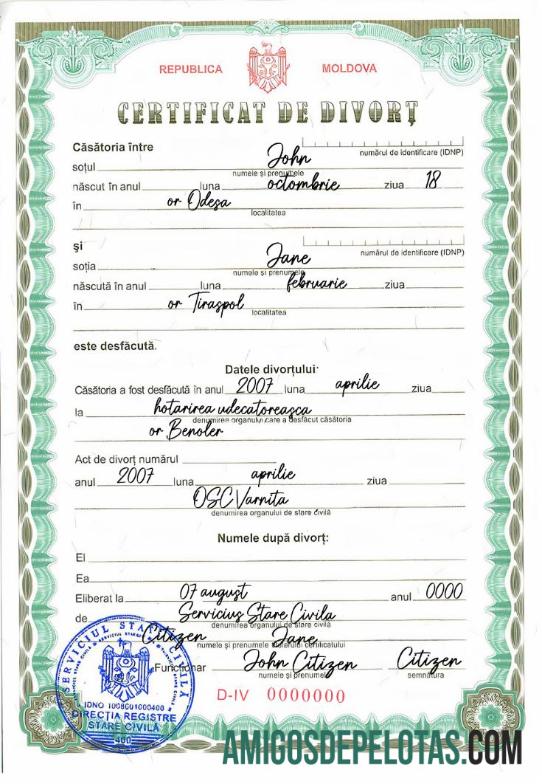 REPUBLICA MOLDOVA
CERTIFICAT DE DIVORȚ
Căsătoria între
numărul de identificare (IDNP)
soțul John
numele și prenumele
născut în anul luna octombrie ziua 18
în or Odesa
localitatea
și
numărul de identificare (IDNP)
soția Jane
numele și prenumele
născută în anul luna februarie ziua
în or Tiraspol
localitatea
este desfăcută.
Datele divorțului:
Căsătoria a fost desfăcută în anul 2007 luna aprilie ziua
la hotarirea udecatoreasca
denumirea organului care a desfăcut căsătoria
or Benoler
Act de divorț numărul
anul 2007 luna aprilie ziua
OSC Varnita
denumirea organului de stare civilă
Numele după divorț:
El
Ea
Eliberat la 07 august anul 0000
de Servicius Stare Civila
denumirea organului de stare civilă
Citizen Jane
numele și prenumele titularului certificatului
Funcționar John Citizen Citizen
numele și prenumele semnatura
D-IV 0000000
SERVICIUL STARE CIVILĂ
DIRECȚIA REGISTRE
STARE CIVILĂ
AMIGOSDEPELOTAS.COM